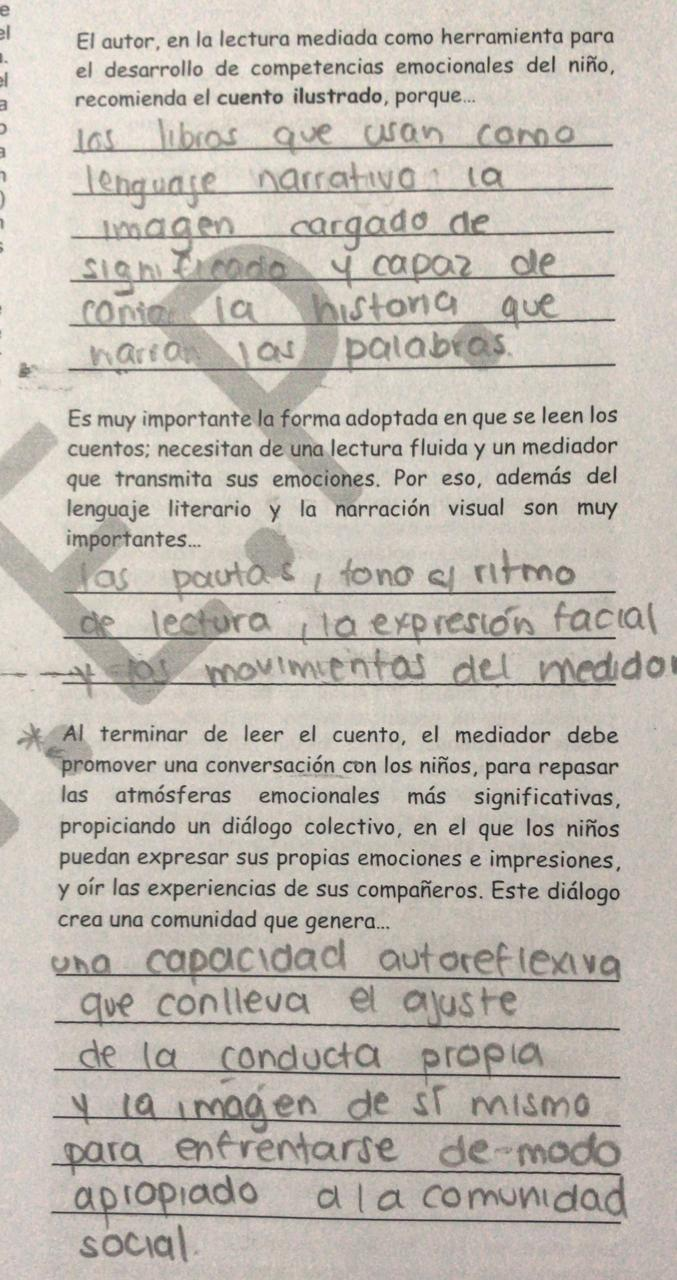 El autor, en la lectura mediada como herramienta para
el desarrollo de competencias emocionales del niño,
recomienda el cuento ilustrado, porque...
los libros que usan como
lenguaje narrativo la
imagen cargado de
significado y capaz de
contar la historia que
narran las palabras.
Es muy importante la forma adoptada en que se leen los
cuentos; necesitan de una lectura fluida y un mediador
que transmita sus emociones. Por eso, además del
lenguaje literario y la narración visual son muy
importantes...
las pautas, tono y ritmo
de lectura, la expresión facial
y los movimientos del medidor
Al terminar de leer el cuento, el mediador debe
promover una conversación con los niños, para repasar
las atmósferas emocionales más significativas,
propiciando un diálogo colectivo, en el que los niños
puedan expresar sus propias emociones e impresiones,
y oír las experiencias de sus compañeros. Este diálogo
crea una comunidad que genera...
una capacidad autoreflexiva
que conlleva el ajuste
de la conducta propia
y la imagen de sí mismo
para enfrentarse de modo
apropiado a la comunidad
social.